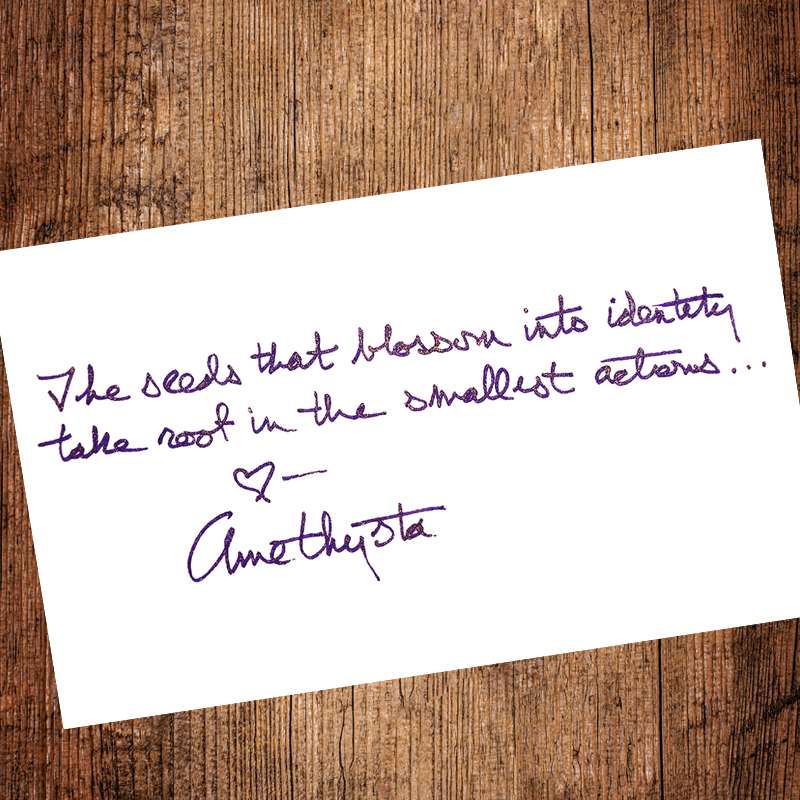 The seeds that blossom into identity
take root in the smallest actions...
♡—
Amethysta